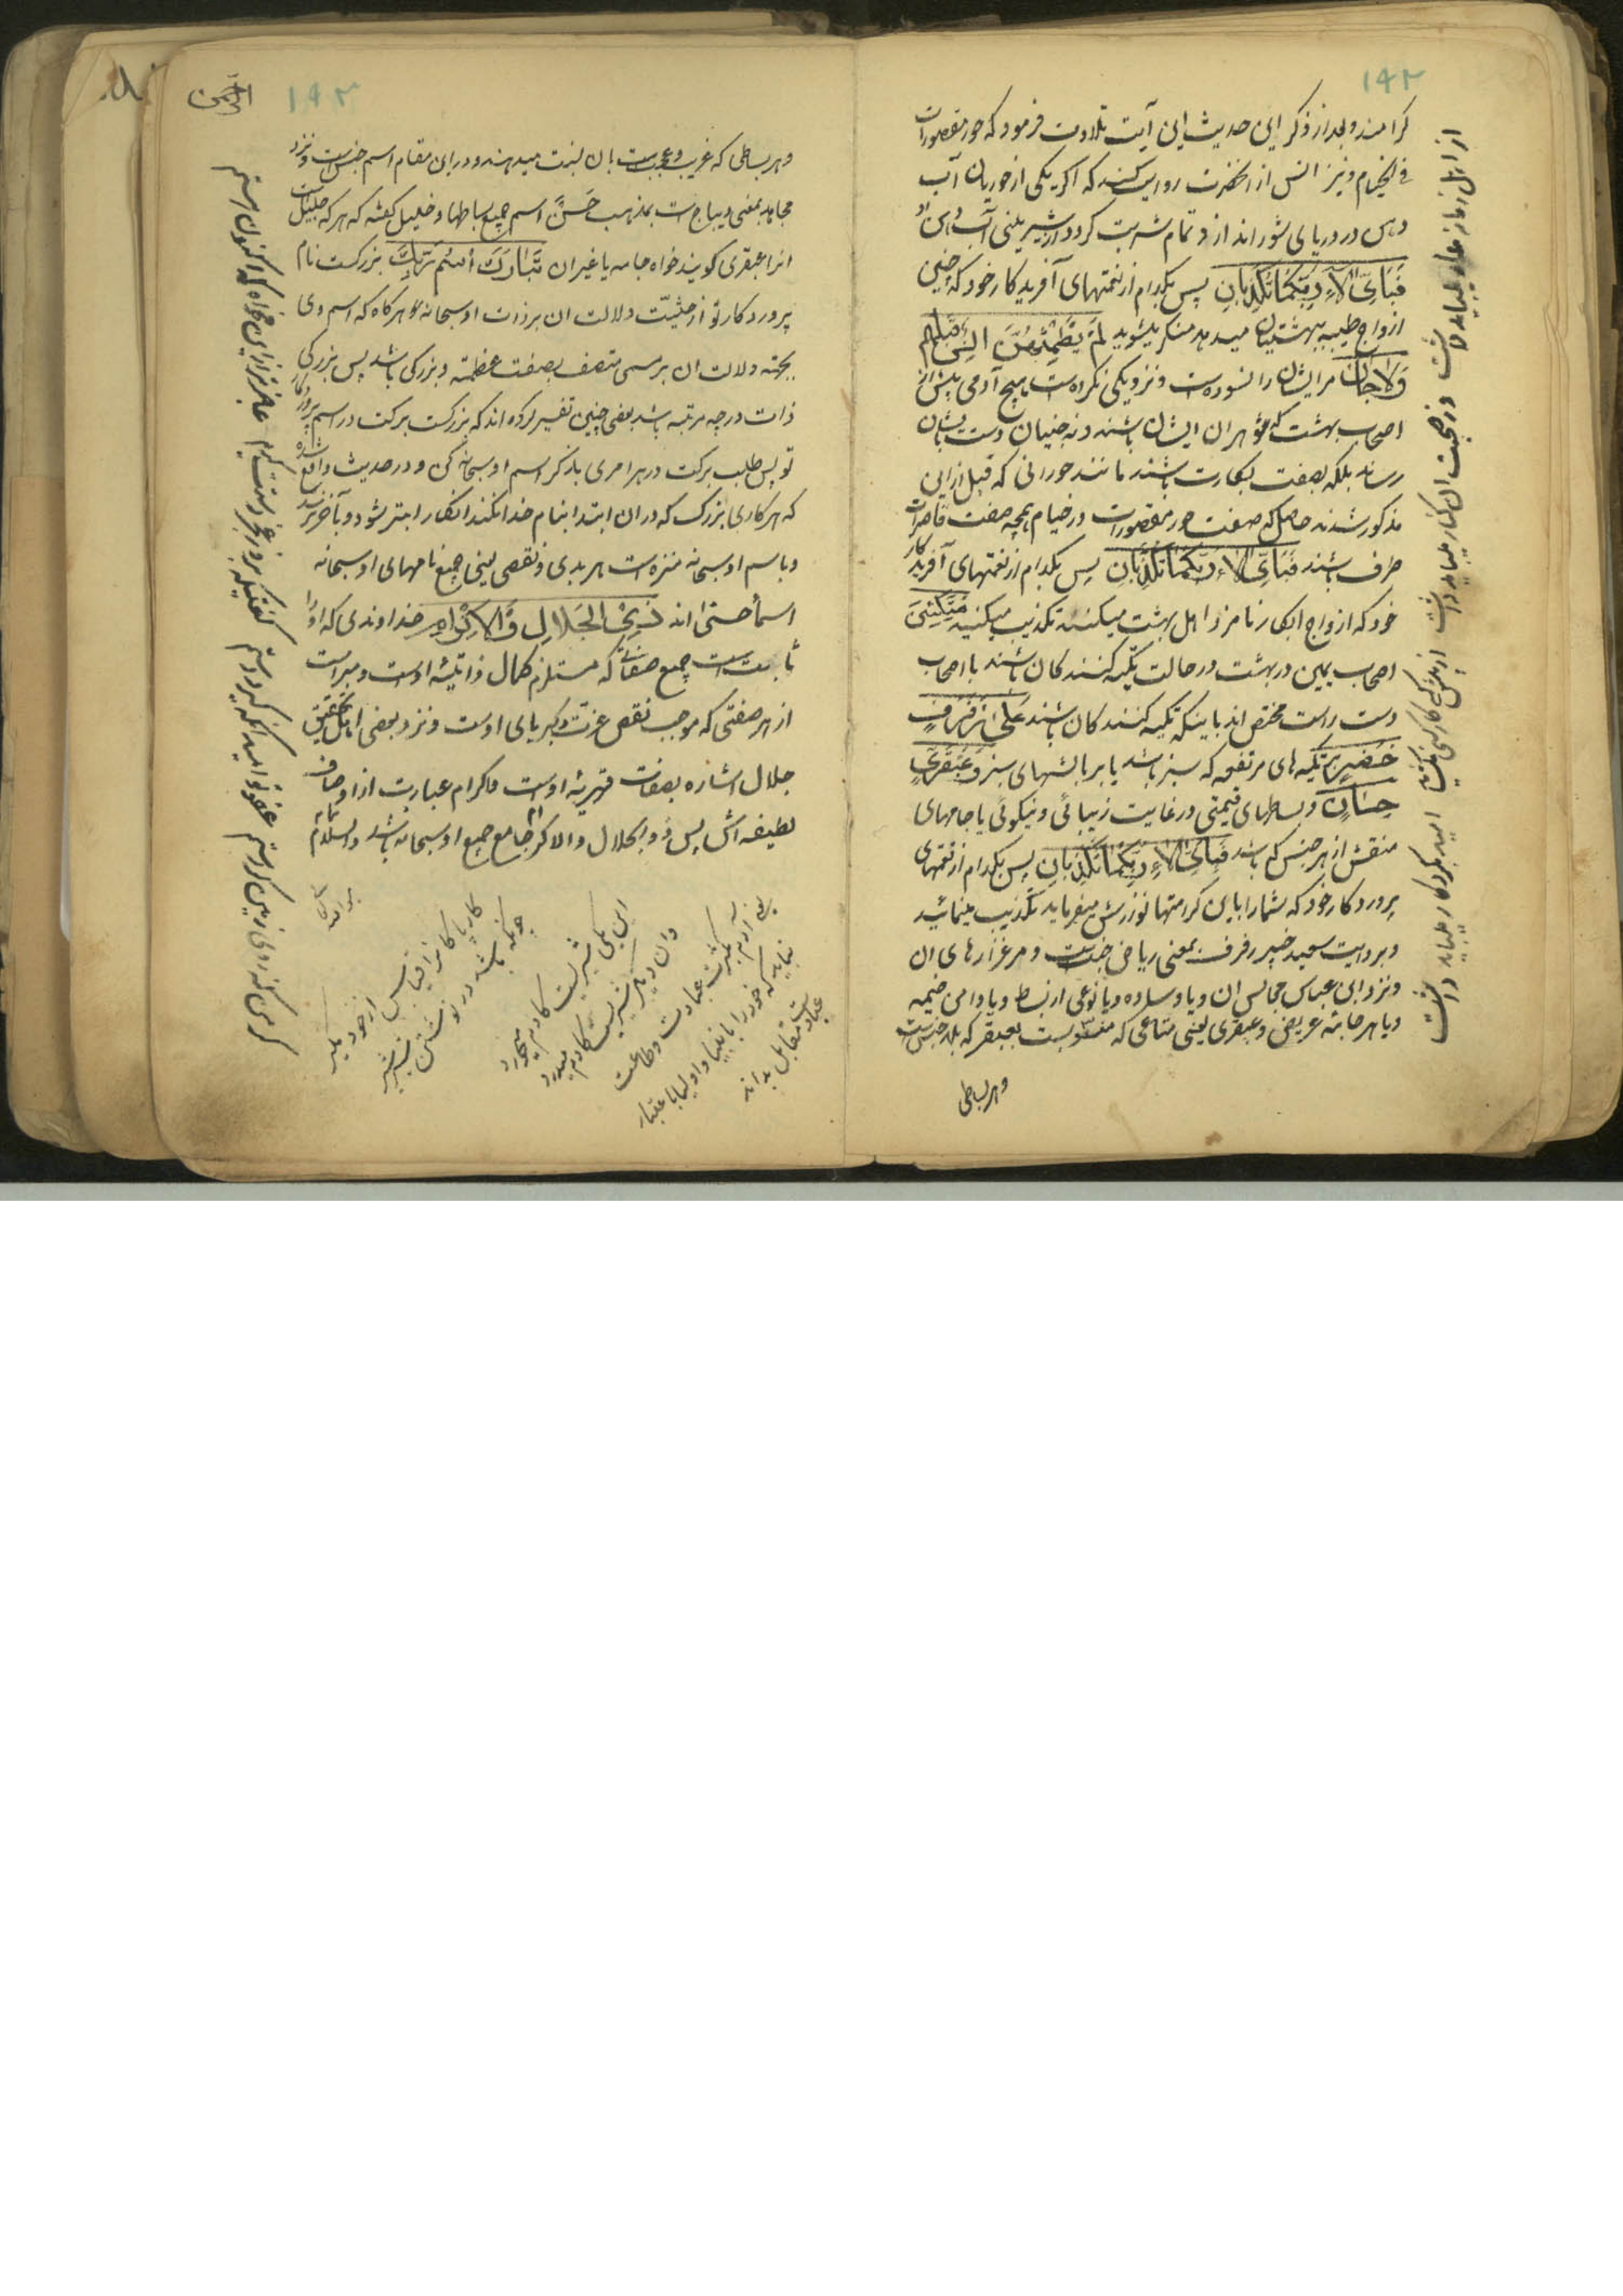 ۱۹۲
کرامند و بعد از ذکر این حدیث این آیت تلاوت فرمود که حور مقصورات
فی الخیام و نیز انس از آنحضرت روایت کند که اکر یکی از حوریان آب
دهن در دریای شور اندازد تمام شربت کردد از شیرینی آب دهن او
فَبَاَیِّ اٰلَاۤءِ رَبِّکُمَا تُکَذِّبَانِ پس بکدام از نعمتهای آفریدکار خود که چنین
ازواج طیبه ببهشتیان میدهد منکر میشوید لَمْ یَطْمِثْهُنَّ اِنْسٌ قَبْلَهُمْ
وَلَا جَانٌّ مر ایشان را نسوده است و نزدیکی نکرده است هیچ آدمی پیش از
اصحاب بهشت که شوهران ایشان باشند و نه جنیان دست بایشان
رساند بلکه بصفت بکارت باشند مانند حورانی که قبل ازین
مذکور شدند حاصل که صفت حور مقصورات در خیام همچه صفت قاصرات
طرف باشند فَبَاَیِّ اٰلَاۤءِ رَبِّکُمَا تُکَذِّبَانِ پس بکدام از نعمتهای آفریدکار
خود که ازواج ابکار نامزد اهل بهشت میکند تکذیب میکنید مُتَّکِئِینَ
اصحاب یمین در بهشت در حالت تکیه کنندکان باشند یا اصحاب
دست راست مختص اند باینکه تکیه کنندکان باشند عَلٰی رَفْرَفٍ
خُضْرٍ بر تکیه های مرتفعه که سبز باشد یا بر بالشهای سبز وَ عَبْقَرِیٍّ
حِسَانٍ و بساطهای قیمتی در غایت زیبائی و نیکوئی یا جامهای
منقش از هر جنس که باشد فَبَاَیِّ اٰلَاۤءِ رَبِّکُمَا تُکَذِّبَانِ پس بکدام از نعمتهای
پروردکار خود که شما را باین کرامتها نوازش میفرماید تکذیب مینمائید
و بروایت سعید جبیر رفرف بمعنی ریاض جنت است و مرغزارهای ان
و نزد ابن عباس مجالس ان و یا وساده و یا نوعی از بسط و یا دامن خیمه
و یا هر جامه عریض و عبقری یعنی متاعی که منسوبست بعبقر که بلد جنست
و هر بساطی
۱۹۳
الرحمن
و هر بساطی که غریب و عجیبست بان نسبت میدهند و در این مقام اسم جنس است و نزد
مجاهد بمعنی دیباج است بمذهب حَسَنْ اسم جمیع بساطها و خلیل کفته که هر که جلیل است
انرا عبقری کویند خواه جامه یا غیر ان تَبَارَکَ اسْمُ رَبِّکَ بزرکست نام
پروردکار تو از حیثیت دلالت ان بر ذات او سبحانه و هرکاه که اسم وی
بجهة دلالت ان بر مسمی متصف بصفت عظمت و بزرکی باشد پس بزرکی
ذات در چه مرتبه باشد بعضی چنین تفسیر کرده اند که بزرکست برکت در اسم پروردکار
تو پس طلب برکت در هر امری بذکر اسم او سبحانه کن و در حدیث واقع شده
که هر کاری بزرک که در ان ابتدا بنام خدا نکنند انکار ابتر شود و بآخر نرسد
و باسم او سبحانه منزه است هر بدی و نقصی یعنی جمیع نامهای او سبحانه
اسمأ حسنی اند ذِی الْجَلَالِ وَالْاِکْرَامِ خداوندی که او را
ثابت است جمیع صفاتی که مستلزم کمال ذاتیه اوست و مبراست
از هر صفتی که موجب نقص عزت و کبریای اوست و نزد بعضی اهل تحقیق
جلال اشاره بصفات قهریه اوست و اکرام عبارت از اوصاف
لطیفه اش پس ذو الجلال و الاکرام جامع جمیع او سبحانه باشد والسلام
کار پاکانرا قیاس از خود مکیر
چونکه باشد در نوشتن شیر شیر
این یکی شیریست کادم میخورد
وان دیکر شیریست کادم میدرد